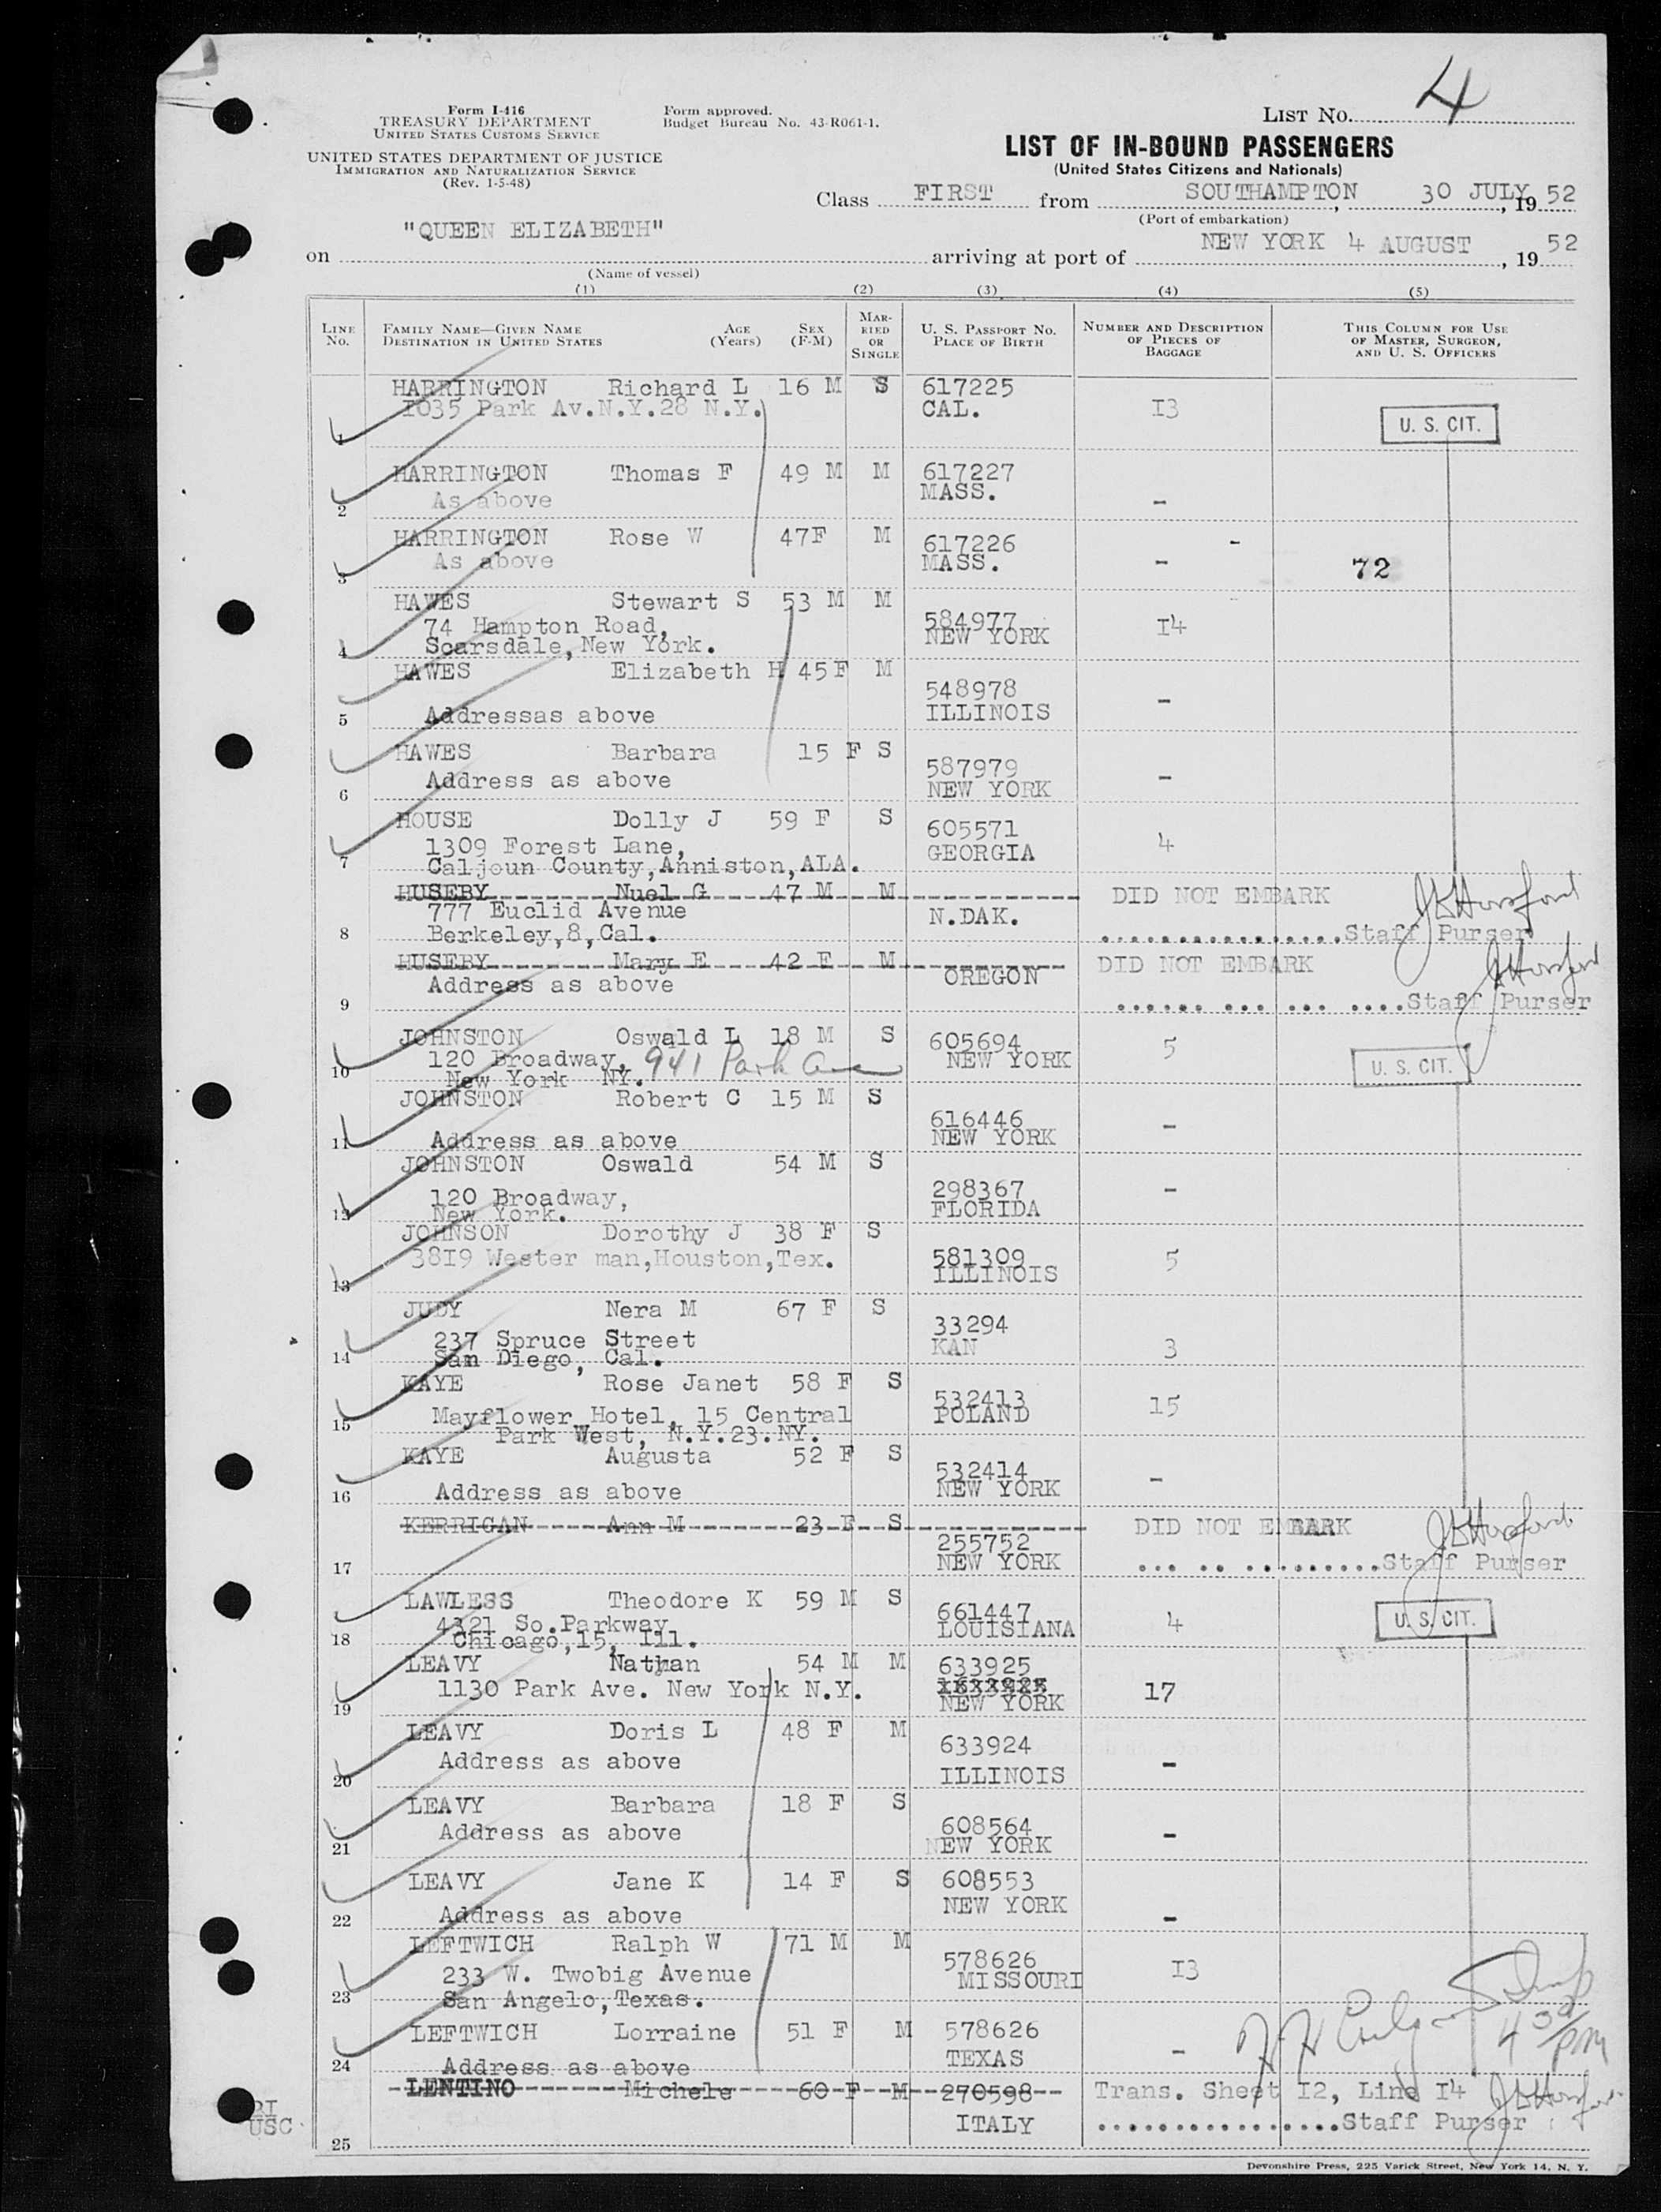 4
LIST No.
Form I-416
TREASURY DEPARTMENT
UNITED STATES CUSTOMS SERVICE
UNITED STATES DEPARTMENT OF JUSTICE
IMMIGRATION AND NATURALIZATION SERVICE
(Rev. 1-5-48)
Form approved.
Budget Bureau No. 43-R061-1.
LIST OF IN-BOUND PASSENGERS
(United States Citizens and Nationals)
Class FIRST from SOUTHAMPTON, 30 JULY, 19 52
(Port of embarkation)
on "QUEEN ELIZABETH" arriving at port of NEW YORK 4 AUGUST, 19 52
(Name of vessel)
(1) (2) (3) (4) (5)
LINE No. FAMILY NAME—GIVEN NAME DESTINATION IN UNITED STATES AGE (Years) SEX (F-M) MARRIED OR SINGLE U. S. PASSPORT No. PLACE OF BIRTH NUMBER AND DESCRIPTION OF PIECES OF BAGGAGE THIS COLUMN FOR USE OF MASTER, SURGEON, AND U. S. OFFICERS
HARRINGTON Richard L 16 M S 617225
1035 Park Av.N.Y.28 N.Y. CAL. 13
1 U. S. CIT.
HARRINGTON Thomas F 49 M M 617227
As above MASS. -
2
HARRINGTON Rose W 47F M 617226 -
As above MASS. - 72
3
HAWES Stewart S 53 M M
74 Hampton Road, 584977 14
4 Scarsdale,New York. NEW YORK
HAWES Elizabeth H 45 F M
548978 -
5 Addressas above ILLINOIS
HAWES Barbara 15 F S
Address as above 587979 -
6 NEW YORK
HOUSE Dolly J 59 F S 605571
1309 Forest Lane, GEORGIA 4
7 Caljoun County,Anniston,ALA.
HUSEBY Nuel G 47 M M DID NOT EMBARK
777 Euclid Avenue N.DAK.
8 Berkeley,8,Cal. ................Staff Purser
HUSEBY Mary E 42 F M DID NOT EMBARK
Address as above OREGON
9 ...... ... ... ....Staff Purser
JOHNSTON Oswald L 18 M S 605694 5
120 Broadway, 941 Park Ave NEW YORK U. S. CIT.
10 New York NY.
JOHNSTON Robert C 15 M S
616446 -
11 Address as above NEW YORK
JOHNSTON Oswald 54 M S
120 Broadway, 298367 -
12 New York. FLORIDA
JOHNSON Dorothy J 38 F S
3819 Wester man,Houston,Tex. 581309 5
13 ILLINOIS
JUDY Nera M 67 F S
237 Spruce Street 33294
14 San Diego, Cal. KAN 3
KAYE Rose Janet 58 F S
Mayflower Hotel, 15 Central 532413 15
15 Park West, N.Y.23.NY. POLAND
KAYE Augusta 52 F S
532414 -
16 Address as above NEW YORK
KERRIGAN Ann M 23 F S DID NOT EMBARK
255752
17 NEW YORK ... .. .........Staff Purser
LAWLESS Theodore K 59 M S
4321 So.Parkway 661447 4 U. S. CIT.
18 Chicago,15, Ill. LOUISIANA
LEAVY Nathan 54 M M 633925
1130 Park Ave. New York N.Y. 17
19 NEW YORK
LEAVY Doris L 48 F M
Address as above 633924 -
20 ILLINOIS
LEAVY Barbara 18 F S
Address as above 608564 -
21 NEW YORK
LEAVY Jane K 14 F S 608553
NEW YORK
22 Address as above -
LEFTWICH Ralph W 71 M M
233 W. Twobig Avenue 578626 13
23 San Angelo,Texas. MISSOURI
LEFTWICH Lorraine 51 F M 578626
24 Address as above TEXAS - 4 30/PM
LENTINO Michele 60 F M 270598 Trans. Sheet 12, Line 14
ITALY ................Staff Purser
25
USC
Devonshire Press, 225 Varick Street, New York 14, N. Y.